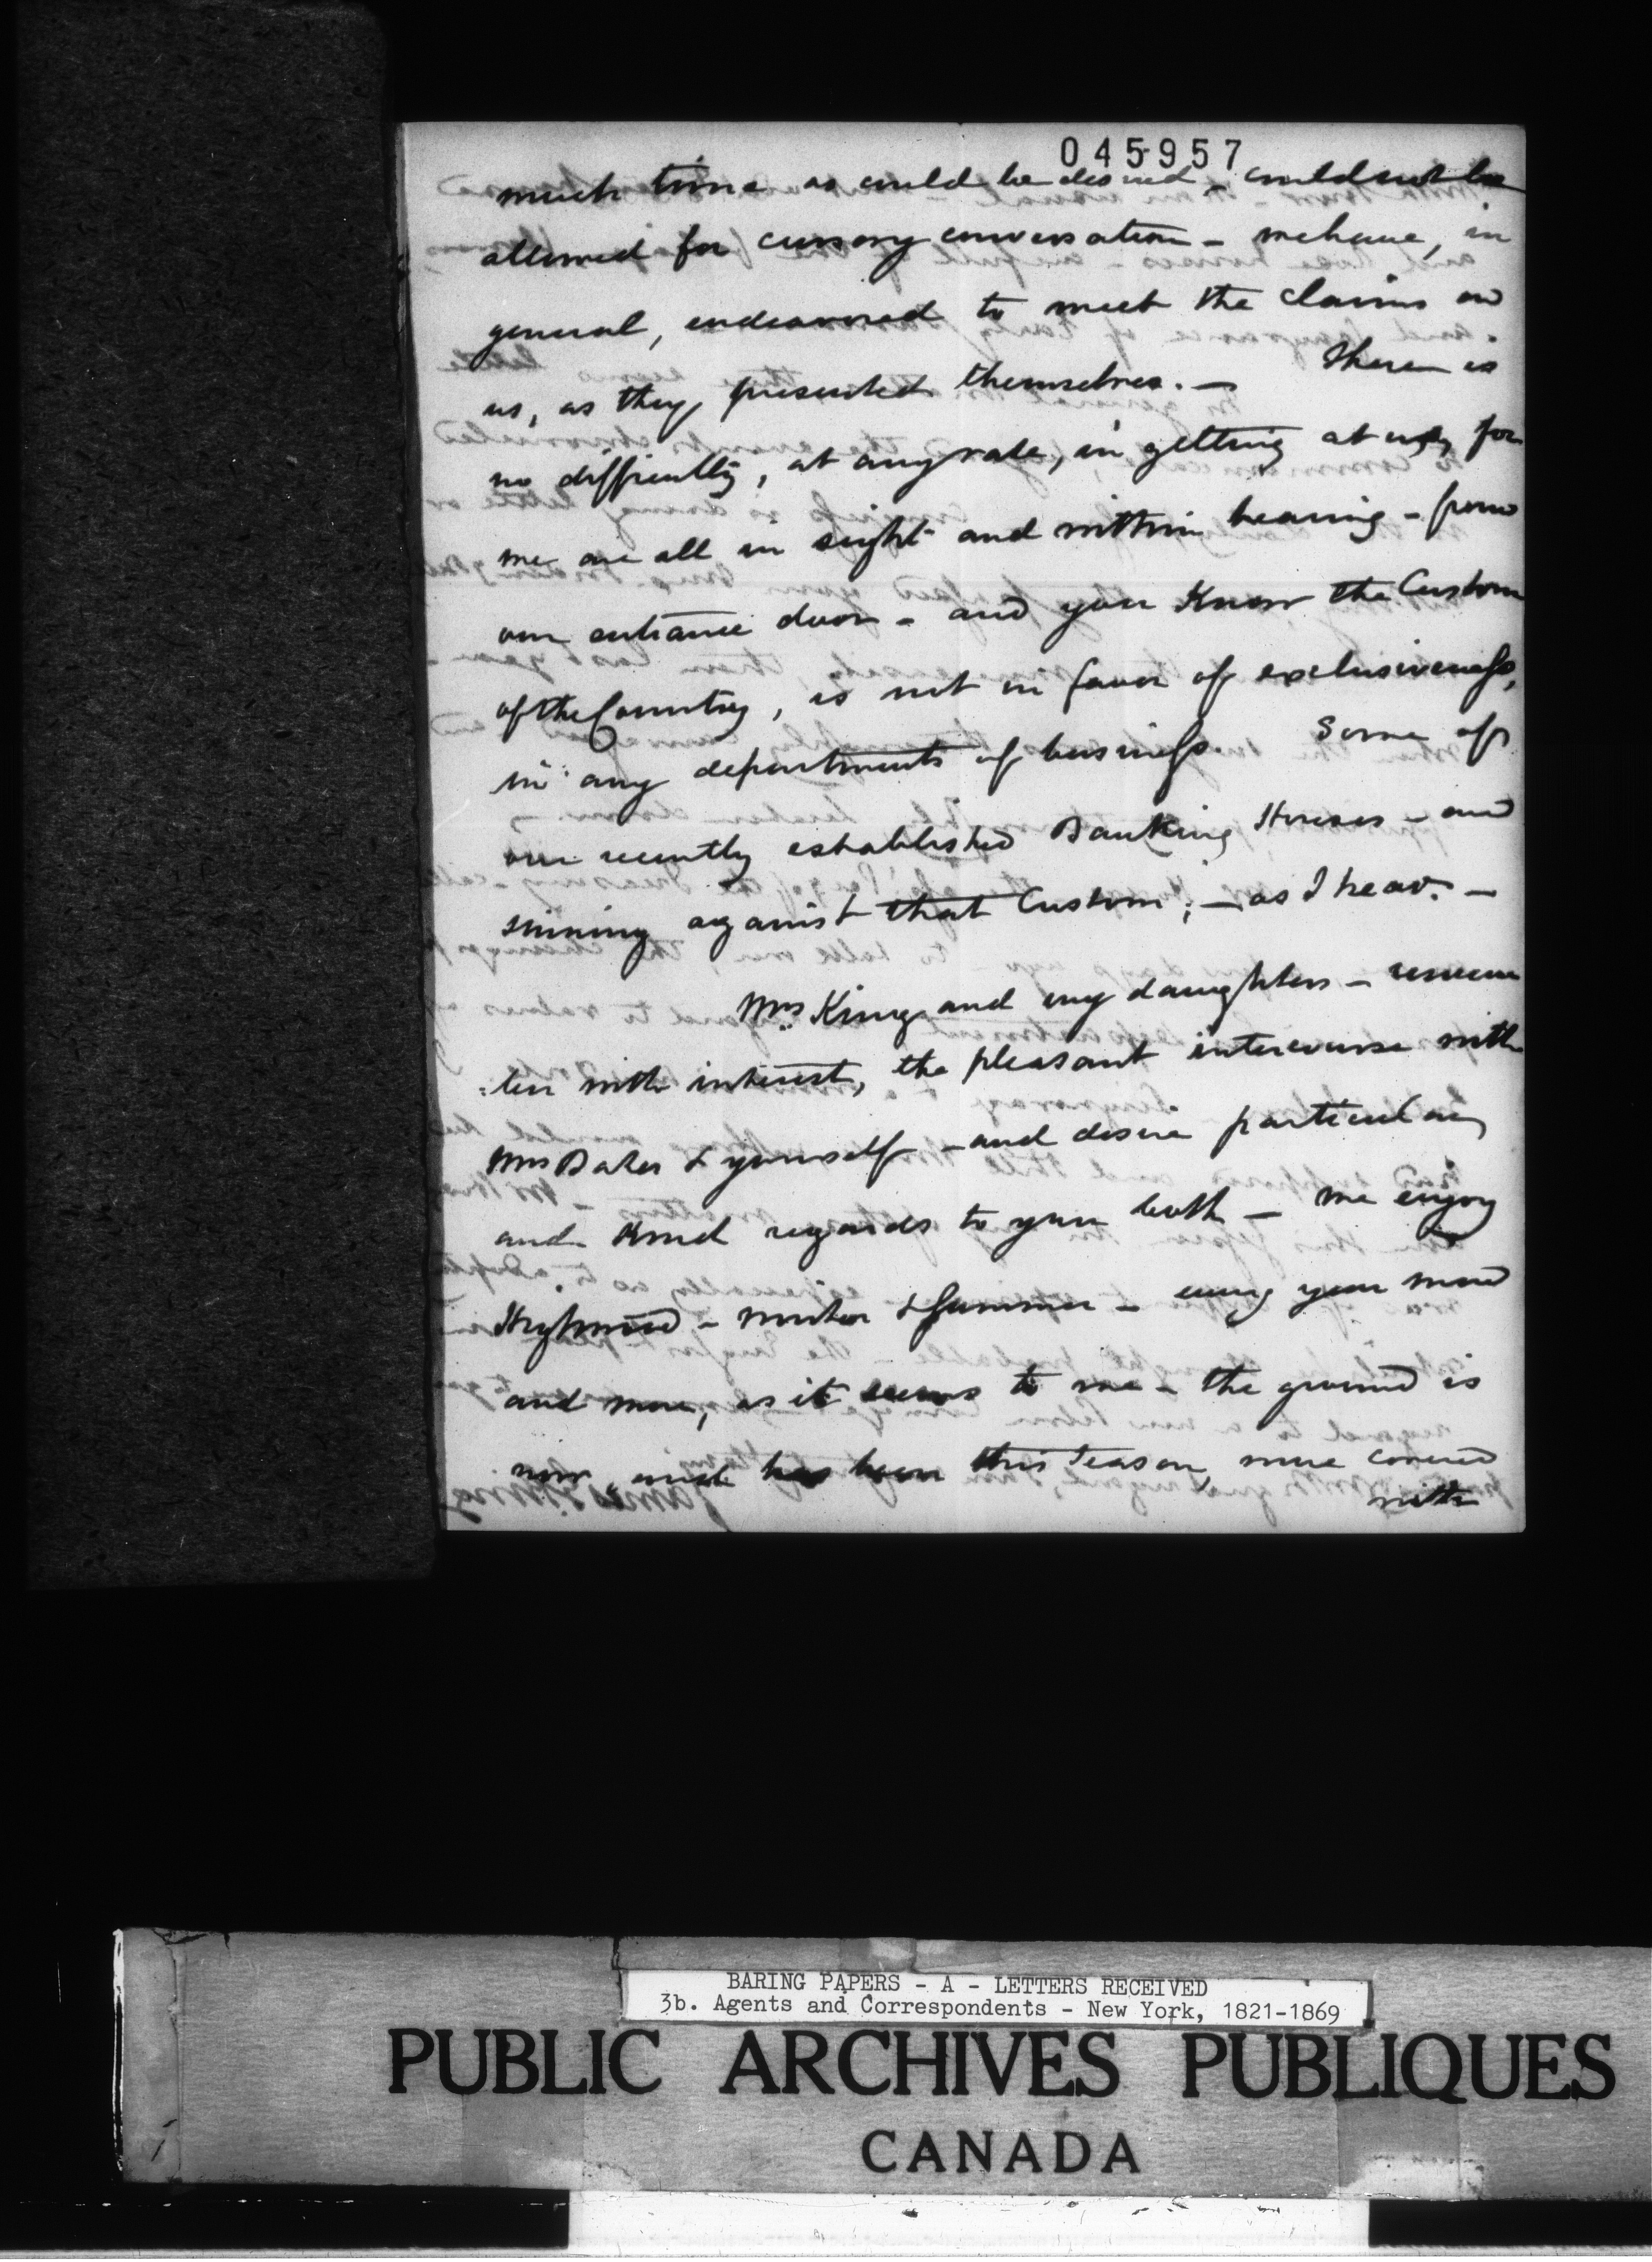 045957
much time as could be desired - could not be
allowed for cursory conversation - we have, in
general, endeavored to meet the claims on
us, as they presented themselves. — There is
no difficulty, at any rate, in getting at us, for
we are all in sight and within hearing - from
our entrance door - and you Know the Custom
of the Country, is not in favor of exclusiveness,
in any departments of business. Some of
our recently established Banking Houses - are
sinning against that Custom, — as I hear. —
Mrs King and my daughters - remem
:ber with interest, the pleasant intercourse with
Mrs Bates & yourself - and desire particular
and Kind regards to you both — We enjoy
Highwood - winter & summer - every year more
and more, as it seems to me - the ground is
now, and has been this season, more covered
with
BARING PAPERS - A - LETTERS RECEIVED
3b. Agents and Correspondents - New York, 1821-1869
PUBLIC ARCHIVES PUBLIQUES
CANADA